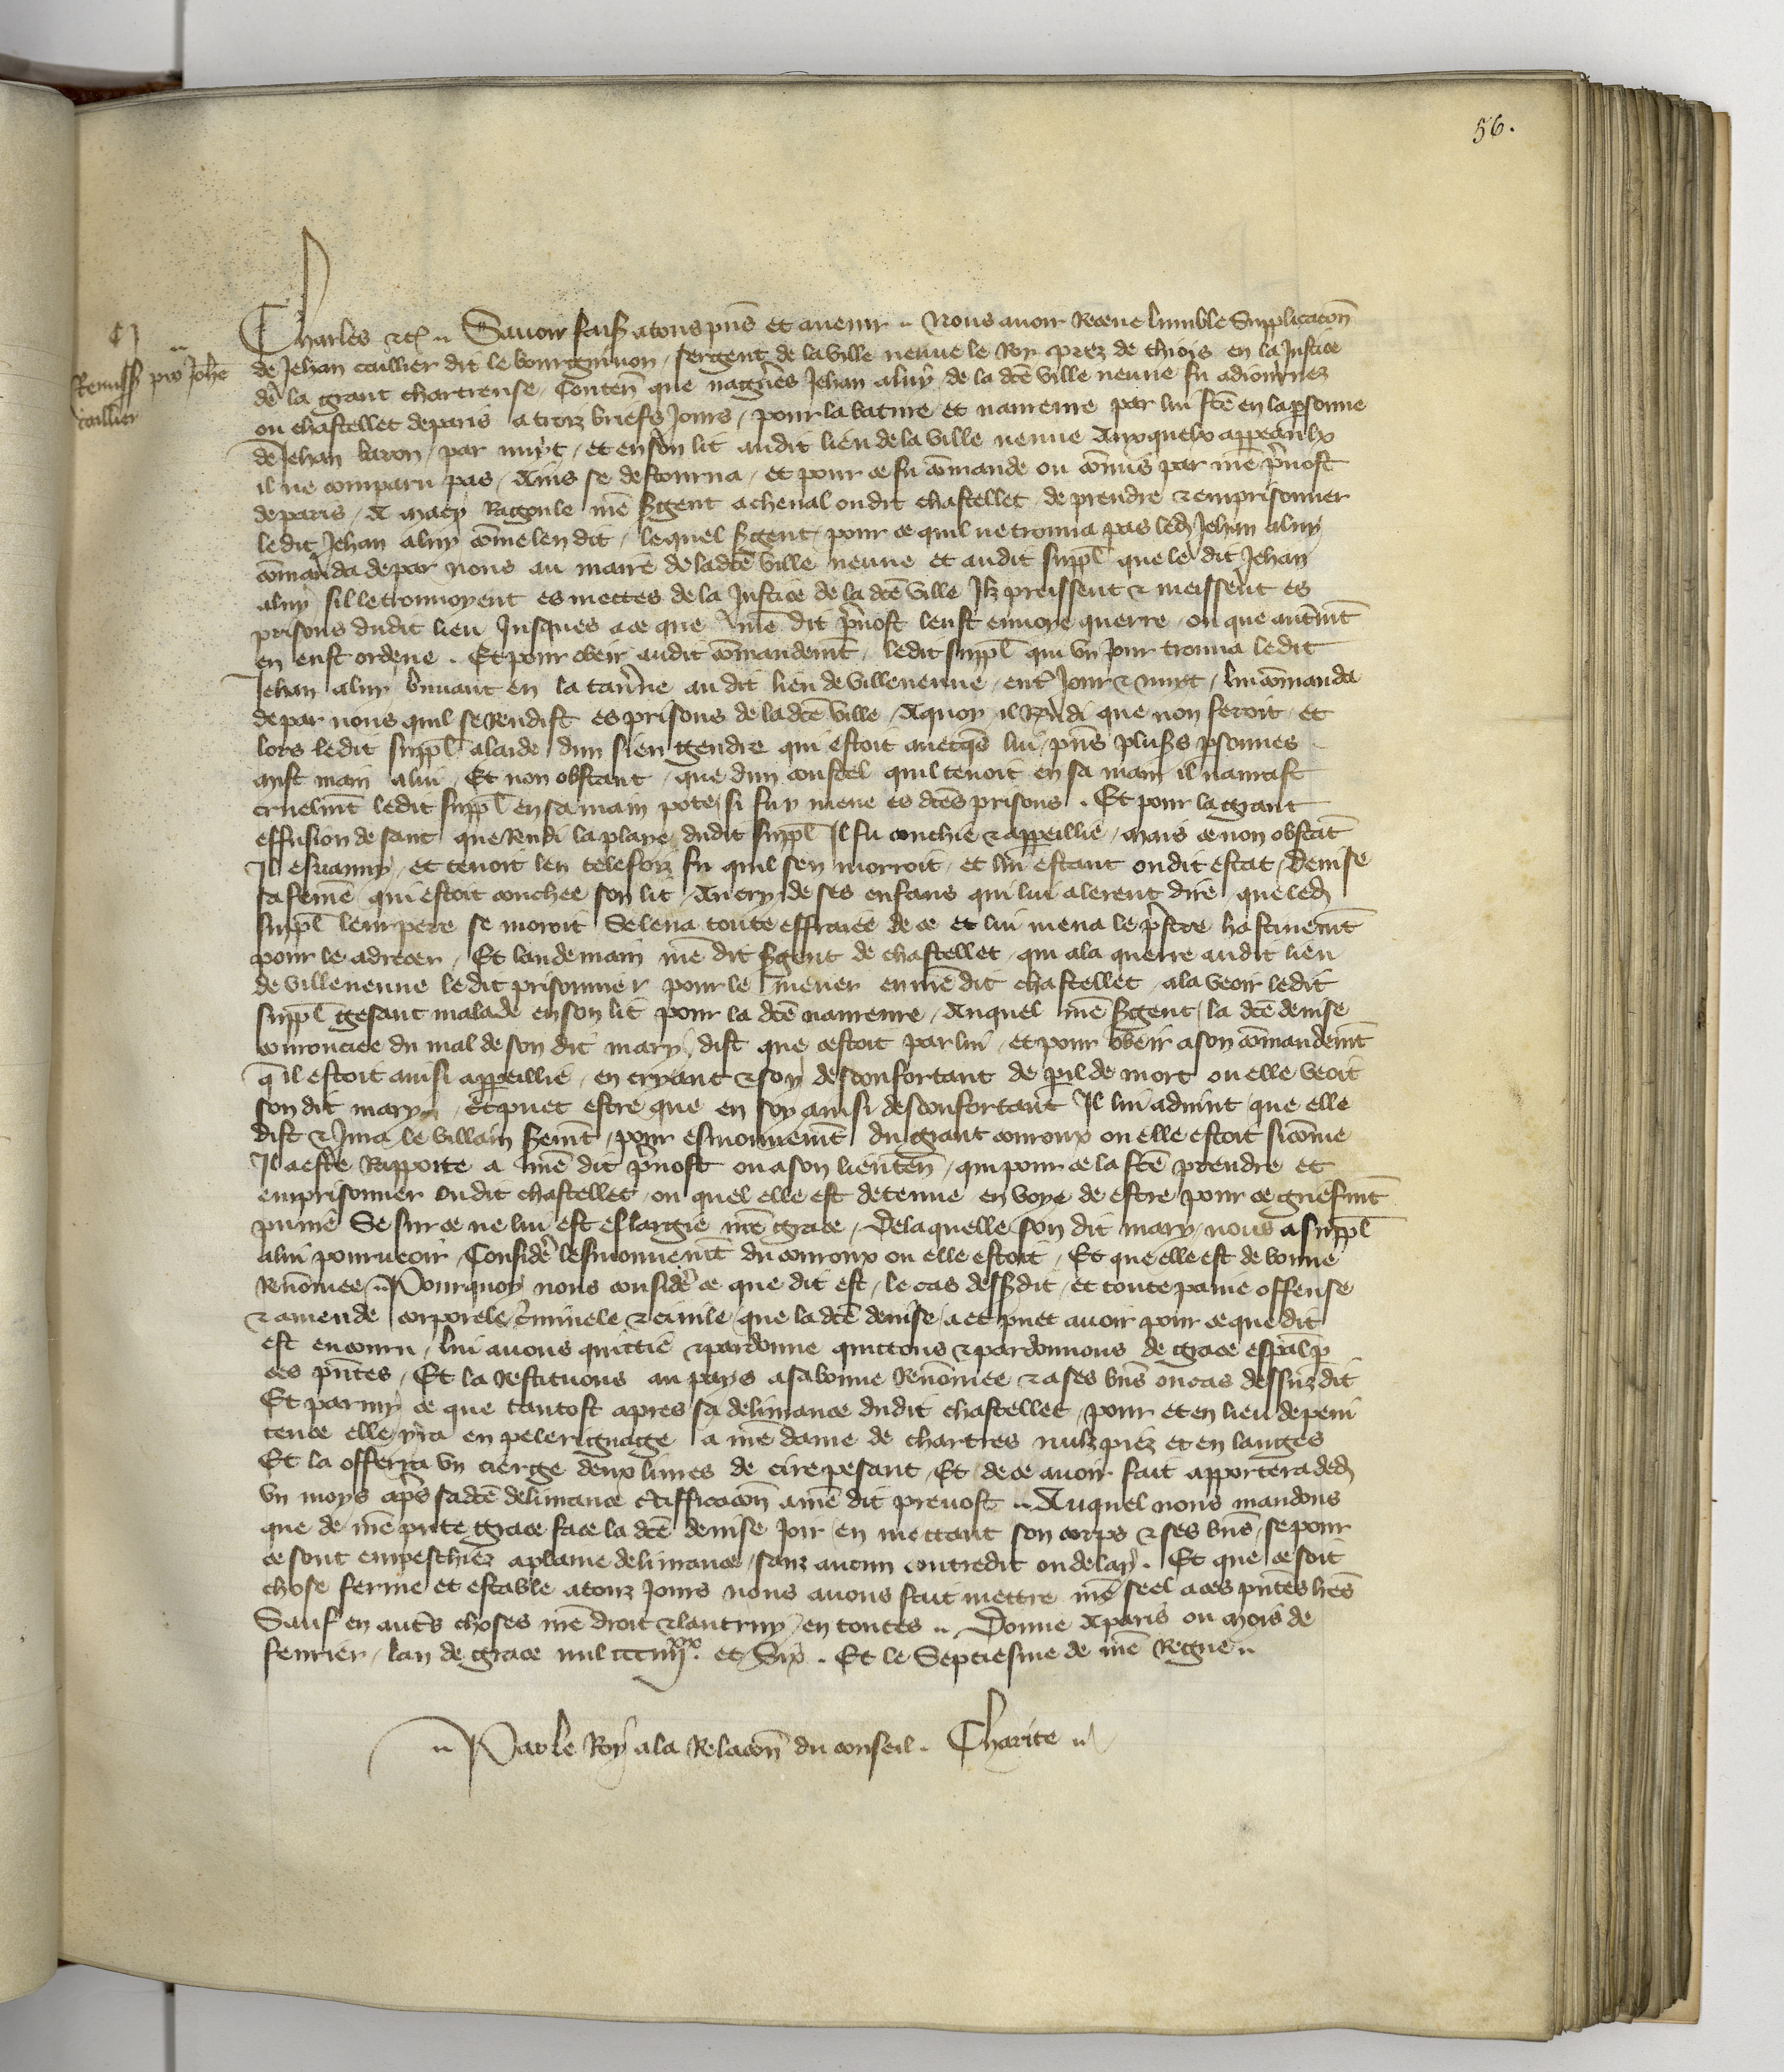 56.
Remissio pro Johanne
caillier
Charles etc. Savoir faisons a tous presens et avenir. Nous avoir Receue lumble Supplicacōn
de Jehan caillier dit le bourguinon, sergent de la ville neuve le Roy prez de thiois en la Justice
de la grant chartreuse, Conten̄ que nagueres Jehan aluy de la dcē ville neuve fu adiournez
ou chastellet de paris a troiz briefs Jours, pour la bature et navreure par lui fcē en la psonne
de Jehan baron, par nuyt, et en son lit audit lieu de la ville neuve Auxquelx appeaulx
il ne comparu pas, Ains se destourna, et pour ce fu cōmande ou cōmis par nrē p̄vost
de paris, A macy Ragoule nrē sgent a cheval oudit chastellet, de prendre & emprisonner
ledit Jehan aluy cōme len dit, lequel sgent, pour ce quil ne trouva pas led Jehan aluy
cōmanda de par nous au maire de ladcē ville neuve et audit suppl̄ que ledit Jehan
aluy sil le trouvoyent es mettes de la Justice de la dcē ville Ilz preissent & meissent es
prisons dudit lieu Jusques a ce que nrē dit p̄vost leust envoye querre, ou que autremt̄
en eust ordene. Et pour obeir audit cōmandemt̄, ledit suppl̄ qui un Jour trouva ledit
Jehan aluy buvant en la taverne audit lieu de villeneuve, entre Jour & nuyt, lui cōmanda
de par nous quil se Rendist es prisons de ladcē ville, A quoy il Rn̄di que non feroit, et
lors ledit suppl̄ a laide dun sien gendre qui estoit avecqs lui, pn̄s plus̄s psonnes
mist main a lui, Et non obstant, que dun coustel quil tenoit en sa main il navrast
cruelmt̄ ledit suppl̄ en sa main pote, si fu y mene es dcēs prisons. Et pour la grant
effusion de sanc que Rendi la playe dudit suppl̄ Il fu couchie & appeillie, mais ce non obstāt
Il esvanuy, et tenoit len telefoiz fu quil sen morroit, et lui estant oudit estat, Denise
sa feme qui estoit couchee son lit, Au cry de ses enfans qui lui alerent dire, que led
suppl̄ leur pere se moroit Se leva toute effraiee de ce et lui mena le p̄stre hastivemt̄
pour le adrecer, Et landemain nrē dit sgent de chastellet, qui ala querre audit lieu
de villeneuve ledit prisonnier pour le mener en nrē dit chastellet, ala veoir ledit
suppl̄ gesant malade en son lit pour la dcē navreure, Auquel nrē sgent, la dcē denise
courouciee du mal de son dit mary, dist que cestoit par lui, et pour obeir a son cōmandemt̄
q̄ il estoit ainsi appeillie, en cryant & soy desconfortant de pil de mort ou elle veoit
son dit mary, et puet estre que en soy ainsi desconfortant Il lui advint que elle
dist & Jura le villain serement, pour esmouvemt̄ du grant couroux ou elle estoit sicōme
Il a este Rapporte a nrē dit p̄vost ou a son lieuten̄, qui pour ce la fcē prendre et
emprisonner oudit chastellet, ou quel elle est detenue en voye de estre pour ce griefmt̄
punie Se sur ce ne lui est eslargie nrē grace, De laquelle son dit mary, nous a suppl̄
a lui pourveoir, Consider̄ lesmouvemt̄ du couroux ou elle estoit, Et que elle est de bonne
Renōmee. Pourquoy nous consider̄ ce que dit est, le cas dessusdit, et toute paine offense
& amende corporele, criminele & civile, que la dcē denise, a et puet avoir pour ce que dit
est encouru, lui avons quittie & pardonne quittons & pardonnons de grace espal p̄
ces pn̄tes, Et la Restituons au pays a sa bonne Renōmee & a ses bn̄s ou cas dessuz dit
Et parmy ce que tantost apres sa delivrance dudit chastellet, pour et en lieu de peni
tence elle yra en pelerignage a nrē dame de chartres nulz piez et en langes
Et la offerra un cierge deux livres de cire pesant, Et de ce avoir fait apportera ded
un moys ap̄s sadcē delivrance c̄tifficacōn a nrē dit prevost. Auquel nous mandons
que de nrē pn̄te grace face la dcē denise Joir, en mettant son corps & ses bn̄s, se pour
ce sont empeschiez a plaine delivrance, sanz aucun contredit ou delay. Et que ce soit
chose ferme et estable a touz Jours nous avons fait mettre nrē seel a ces pn̄tes lrēs
Sauf en aut̄s choses nrē droit & lautruy, en toutes. Donne A paris ou mois de
fevrier, lan de grace mil ccc iiii xx. et Six. Et le Septiesme de nrē Regne.
Par le Roy a la Relacōn du conseil. Charite